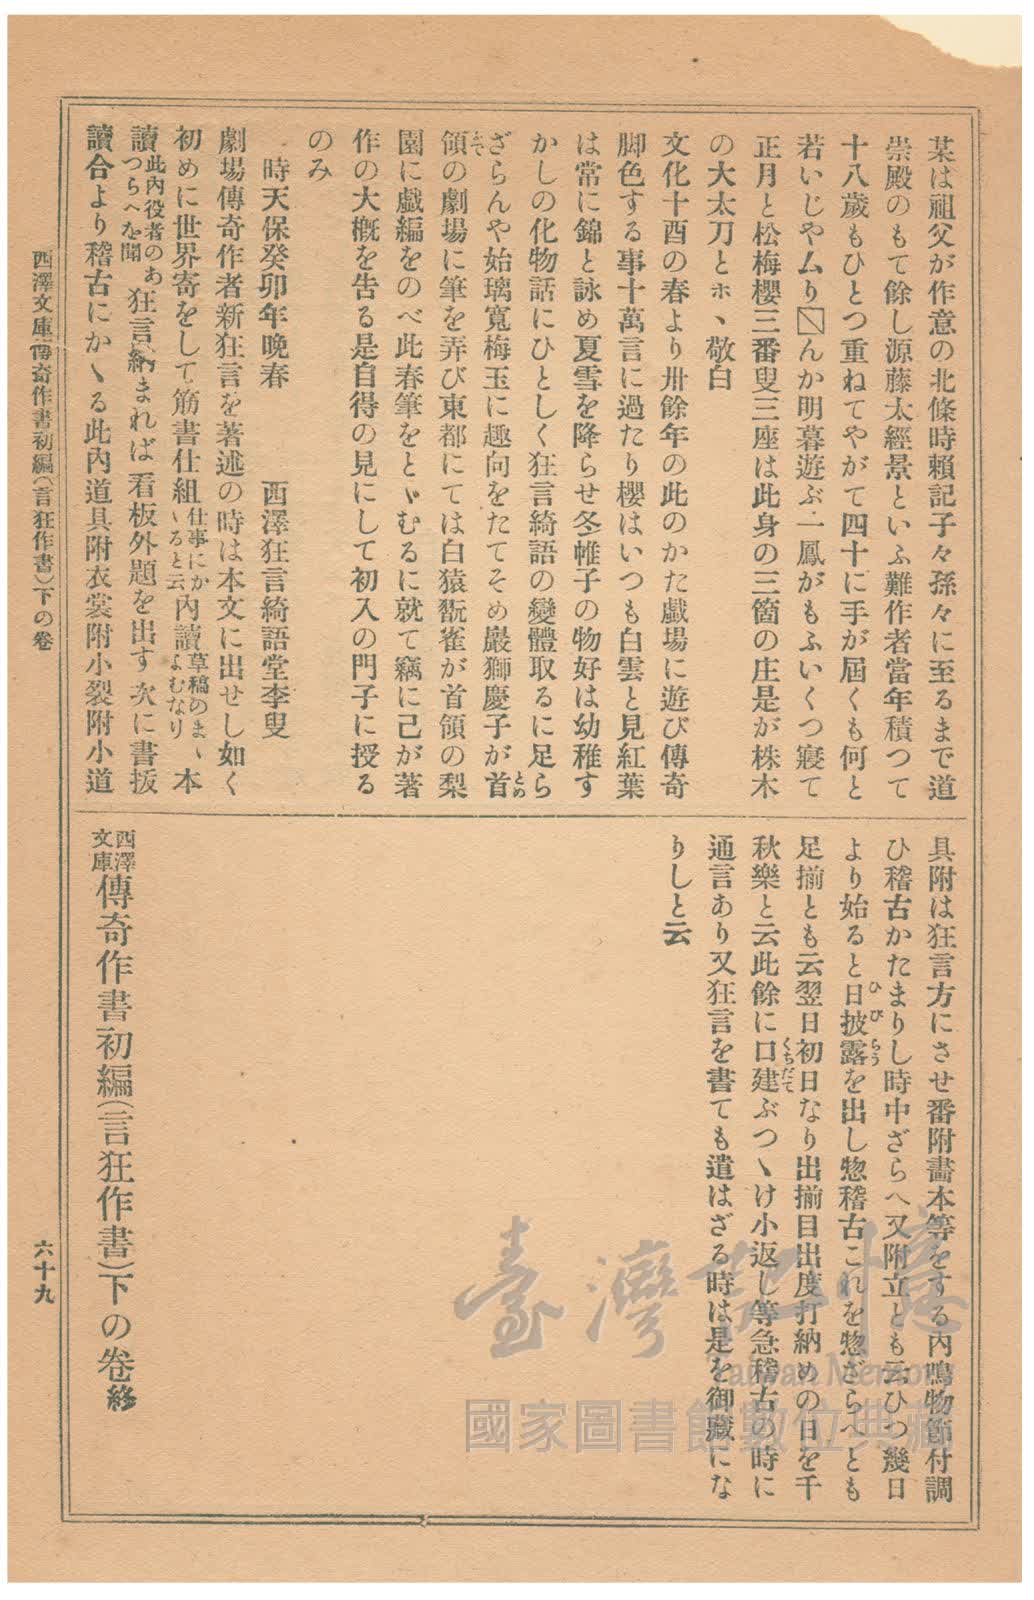 某は祖父が作意の北條時賴記子々孫々に至るまで道
崇殿のもて餘し源藤太經景といふ難作者當年積つて
十八歲もひとつ重ねてやがて四十に手が屆くも何と
若いじやムり〼んか明暮遊ぶ一鳳がもふいくつ寢て
正月と松梅櫻三番叟三座は此身の三箇の庄是が株木
の大太刀とホヽ敬白
文化十酉の春より卅餘年の此のかた戲場に遊び傳奇
脚色する事十萬言に過たり櫻はいつも白雲と見紅葉
は常に錦と詠め夏雪を降らせ冬帷子の物好は幼稚す
かしの化物話にひとしく狂言綺語の變體取るに足ら
ざらんや始璃寬梅玉に趣向をたてそめ巖獅慶子が首
とめ
領の劇場に筆を弄び東都にては白猿翫雀が首領の梨
ふで
園に戲編をのべ此春筆をとゞむるに就て竊に己が著
作の大槪を告る是自得の見にして初入の門子に授る
のみ
時天保癸卯年晩春 西澤狂言綺語堂李叟
劇場傳奇作者新狂言を著述の時は本文に出せし如く
初めに世界寄をして筋書仕組仕事にかヽると云內讀草稿のまヽよむなり本
讀此內役者のあつらへを聞狂言納まれば看板外題を出す次に書拔
讀合より稽古にかヽる此內道具附衣裳附小裂附小道
具附は狂言方にさせ番附畵本等をする內鳴物節付調
ひ稽古かたまりし時中ざらへ又附立とも云ひつ幾日
より始ると日披露を出し惣稽古これを惣ざらへとも
ひびらう
足揃とも云翌日初日なり出揃目出度打納めの日を千
秋樂と云此餘に口建ぶつヽけ小返し等急稽古の時に
くちだて
通言あり又狂言を書ても遣はざる時は是を御藏にな
りしと云
西澤文庫傳奇作書初編(言狂作書)下の卷終
西澤文庫傳奇作書初編(言狂作書)下の卷
六十九
臺灣記憶
Taiwan Memory
國家圖書館數位典藏